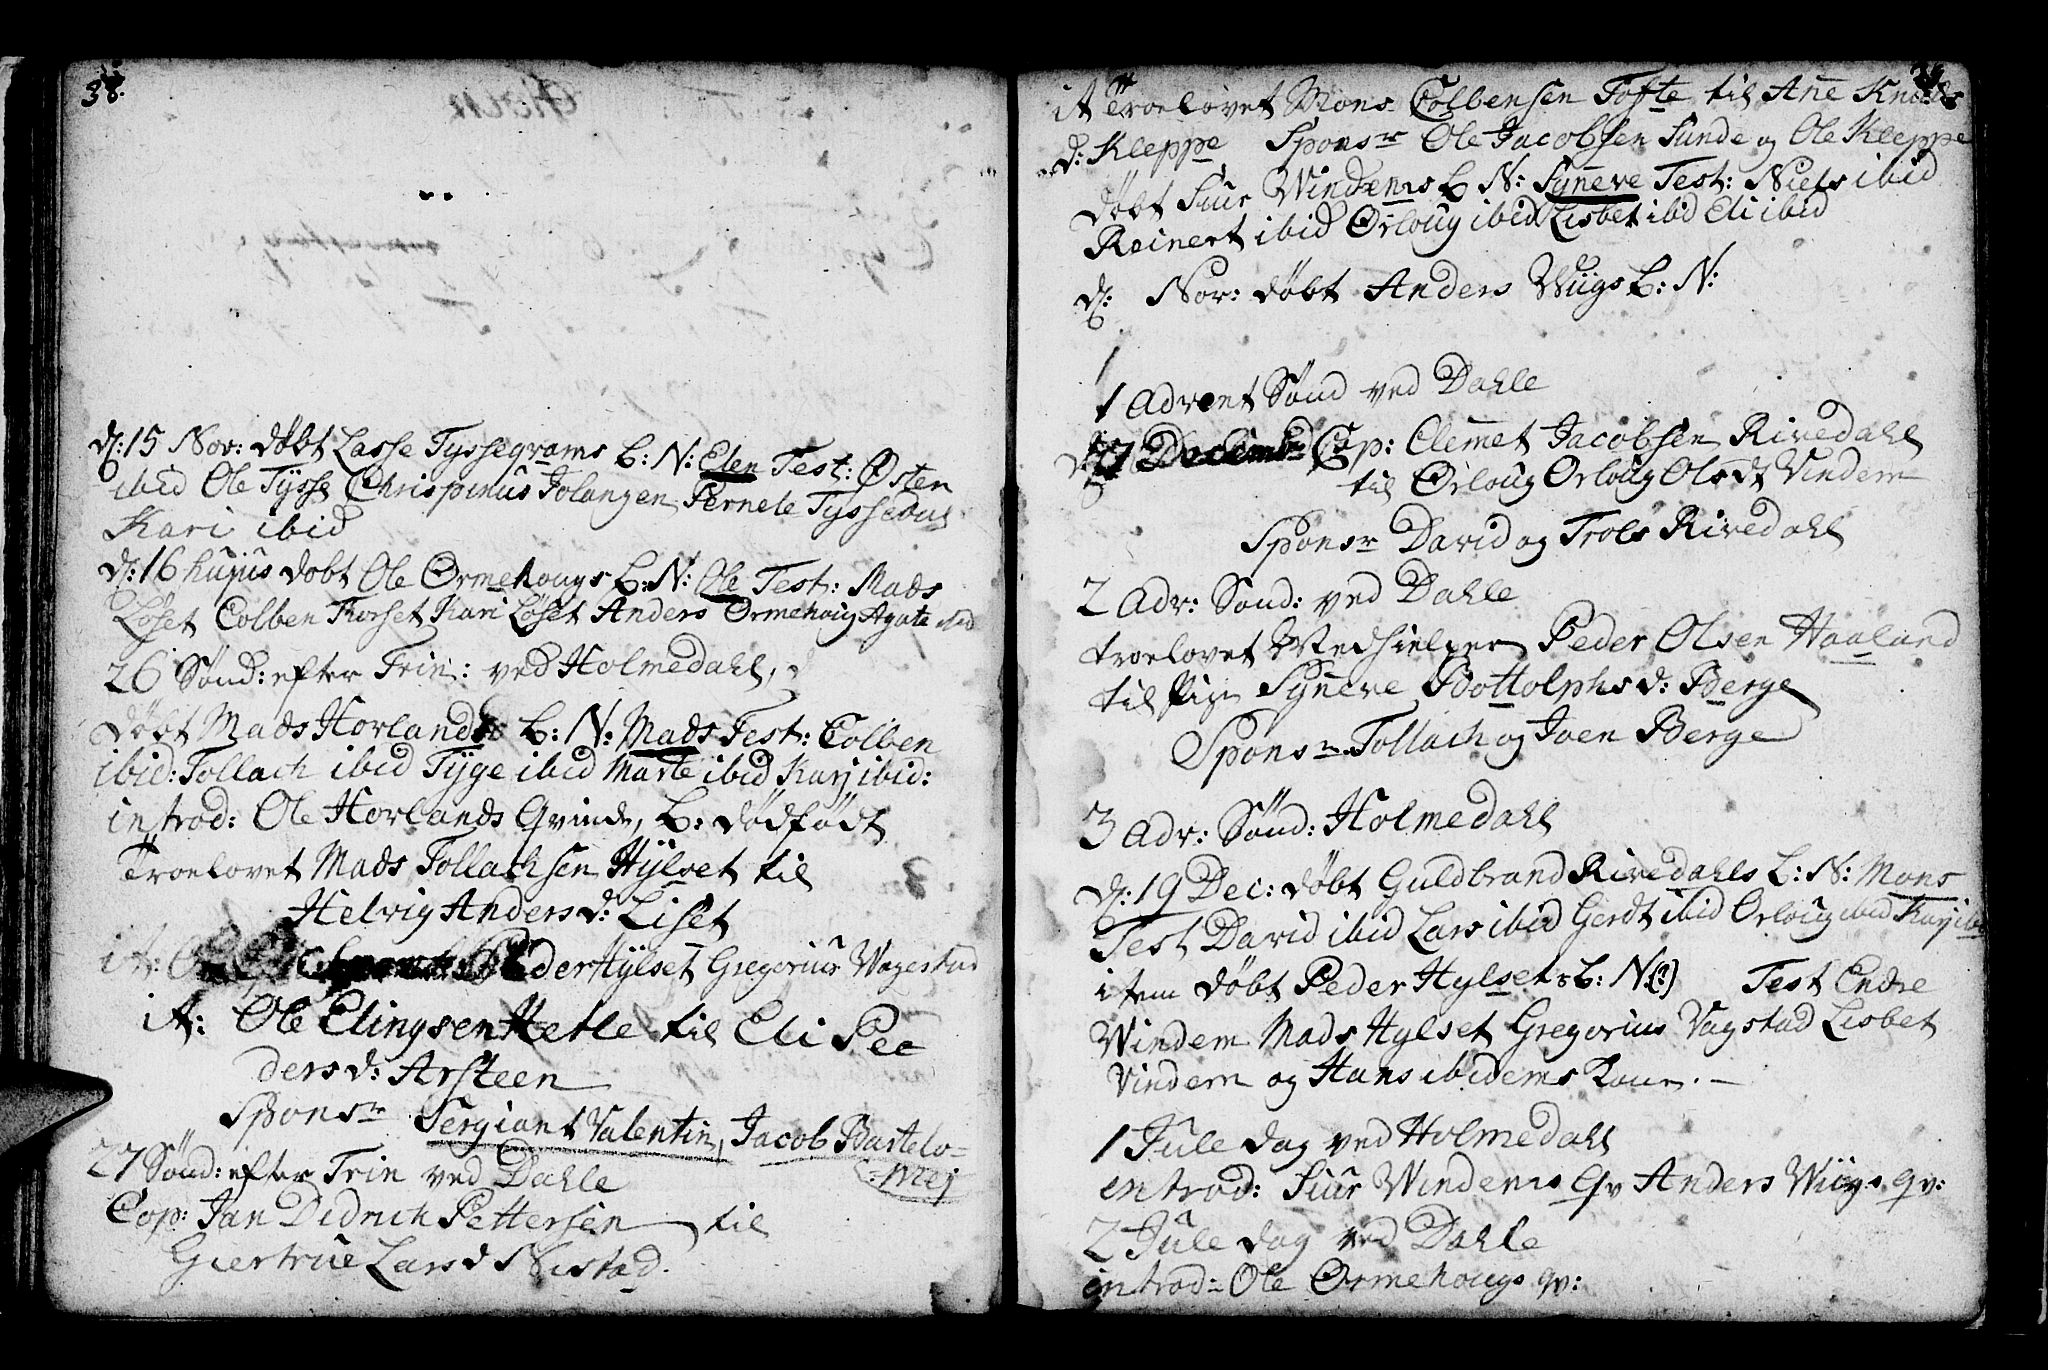 38.
d: 15 Nov: døbt Lasse Tyssegrams b: N: Elen Test: Østen
ibid Ole Tysse Chrispinus Folangen Pernele Tyssedus
Kari ibid
d: 16 hujus døbt Ole Ørmehougs b: N: Ole Test: Mads
Løset Colben Korset Kari Løset Anders Ørmehoug Agate ibid
26 Sönd: efter Trin: ved Holmedahl
døbt Mads Horlands b: N: Mads Test: Colben
ibid: Tollach ibid Tyge ibid Marte ibid Karj ibid:
introd: Ole Horlands Qvinde, b: dödfödt
Troelovet Mads Tollachsen Hÿlset til
Helvig Anders d: Liset
it: Peder Hylset Gregorius Wagestad
it: Ole Elingsen Hetle til Eli Pee
ders d: Arsteen
Sponsr Sergiant Valentin, Jacob Bartelo-
mej
27 Sönd: efter Trin ved Dahle
Cop: Jan Didrich Pettersen til
Giertrue Lars d Nistad.
it Troelovet Mons Colbensen Tofte til Ane Knuds
d: Kleppe Sponsr Ole Jacobsen Sunde og Ole Kleppe
døbt Siur Vindems b N: Syneve Test: Niels ibid
Reinert ibid Ørloug ibid Lisbet ibid Eli ibid
d: Nov: döbt Anders Wiigs b: N:
1 Advent Sönd ved Dahle
Cop: Clemet Jacobsen Rivedahl
til Ørloug Orloug Olsdt Vindem
Sponsr David og Trols Rivedahl
2 Adv: Sönd: ved Dahle
troelovet Medhielper Peder Olsen Haaland
til Pige Syneve Bottolphs d: Berge
Sponsr Tollach og Joen Berge
3 Adv: Sönd: Holmedahl
d: 19 Dec: döbt Guldbrand Rivedahls b: N: Mons
Test David ibid Lars ibid Gerdt ibid Orloug ibid Karj ibid
item döbt Peder Hylsets b: N(:) Test Endre
Windem Mads Hylset Gregorius Vagstad Lisbet
Vindem og Hans ibidems Kone.
1 Jule dag ved Holmedahl
introd: Siur Windems Qv Anders Wiigs qv:
2 Jule dag ved Dahle
introd: Ole Ørmehougs qv: